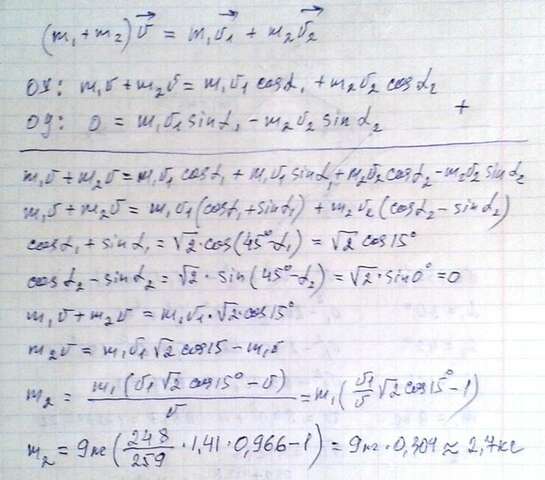 (m₁+m₂)v⃗ = m₁v⃗₁ + m₂v⃗₂
OX: m₁v + m₂v = m₁v₁ cosα₁ + m₂v₂ cosα₂
+
OY: 0 = m₁v₁ sinα₁ - m₂v₂ sinα₂
m₁v + m₂v = m₁v₁ cosα₁ + m₁v₁ sinα₁ + m₂v₂ cosα₂ - m₂v₂ sinα₂
m₁v + m₂v = m₁v₁(cosα₁ + sinα₁) + m₂v₂(cosα₂ - sinα₂)
cosα₁ + sinα₁ = √2·cos(45°-α₁) = √2 cos15°
cosα₂ - sinα₂ = √2·sin(45°-α₂) = √2·sin0° = 0
m₁v + m₂v = m₁v₁·√2·cos15°
m₂v = m₁v₁√2 cos15 - m₁v
m₂ = m₁(v₁√2 cos15° - v)/v = m₁(v₁/v √2 cos15° - 1)
m₂ = 9кг(248/259 · 1,41 · 0,966 - 1) = 9кг · 0,304 ≈ 2,7кг